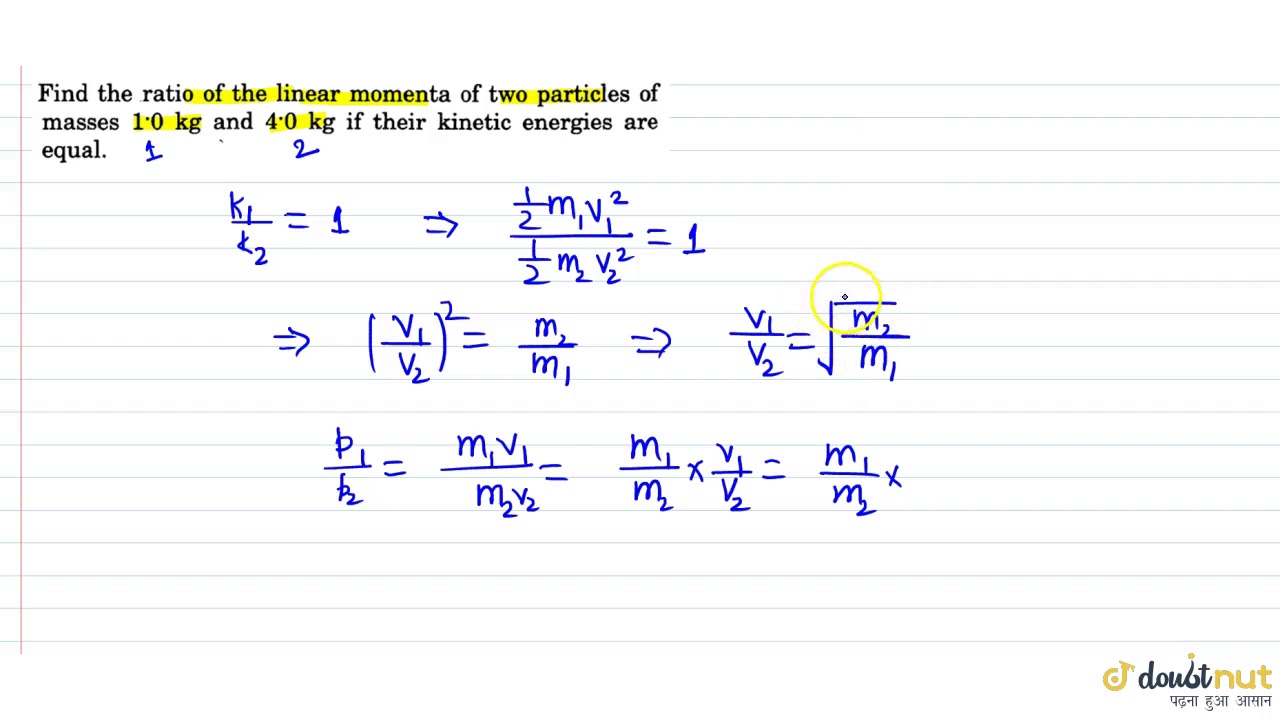 Find the ratio of the linear momenta of two particles of
masses 1·0 kg and 4·0 kg if their kinetic energies are
equal. 1 2
k₁/k₂ = 1 ⇒ (½ m₁v₁²)/(½ m₂v₂²) = 1
⇒ (v₁/v₂)² = m₂/m₁ ⇒ v₁/v₂ = √(m₂/m₁)
p₁/p₂ = m₁v₁/m₂v₂ = m₁/m₂ × v₁/v₂ = m₁/m₂ ×
doubtnut
पढ़ना हुआ आसान